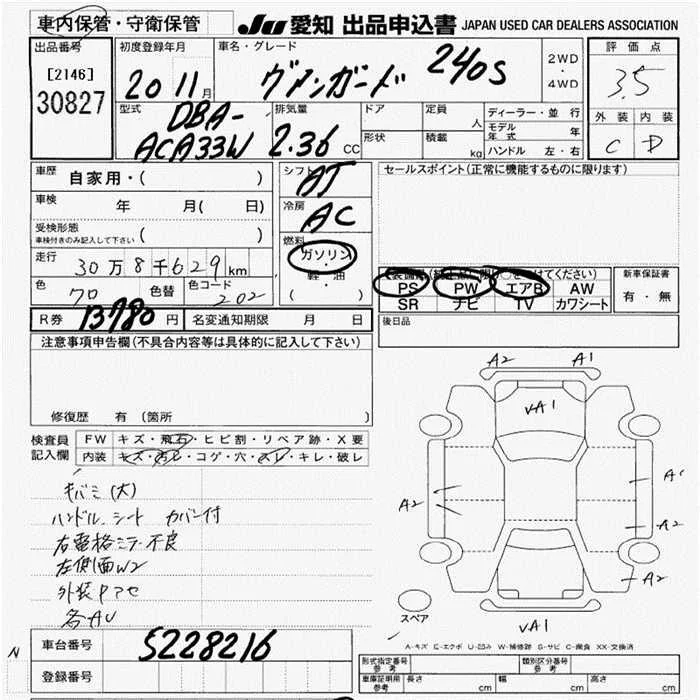 車内保管・守衛保管
JU 愛知 出品申込書 JAPAN USED CAR DEALERS ASSOCIATION
出品番号
[2146]
30827
初度登録年月
20 11月
車名・グレード
ヴァンガード 240S
2WD
・
4WD
評価点
3.5
外装 内装
C D
型式
DBA-
ACA33W
排気量
2.36 CC
ドア
形状
定員 人
積載 kg
ディーラー・並行
モデル年式 年
ハンドル 左・右
車歴 自家用・( )
車検 年 月( 日)
受検形態
車検付きのみ記入して下さい ( )
走行 30万8千629km
色 クロ 色替 色コード 202
シフト
AT
冷房
AC
燃料
ガソリン
・
軽油
( )
セールスポイント(正常に機能するものに限ります)
PS PW エアB AW
SR ナビ TV カワシート
新車保証書
有・無
後日品
R券 13780円 名変通知期限 月 日
注意事項申告欄(不具合内容等は具体的に記入して下さい)
修復歴 有 (箇所
検査員
記入欄
FW キズ・飛石・ヒビ割・リペア跡・X要
内装 キズ・汚レ・コゲ・穴・スレ・キレ・破レ
キバミ(大)
ハンドル、シート カバー付
右電格ミラー不良
左側面W2
外装Pアセ
各AU
A2 A1
VA1
A2
A1
A2
A2
VA1
スペア
A-キズ E-エクボ U-凹み W-補修跡 S-サビ C-腐食 XX-交換済
N
車台番号 S228216
登録番号
形式指定番号
参考
類別区分番号
参考
車庫証明用
参考
長さ cm 幅 cm 高さ cm